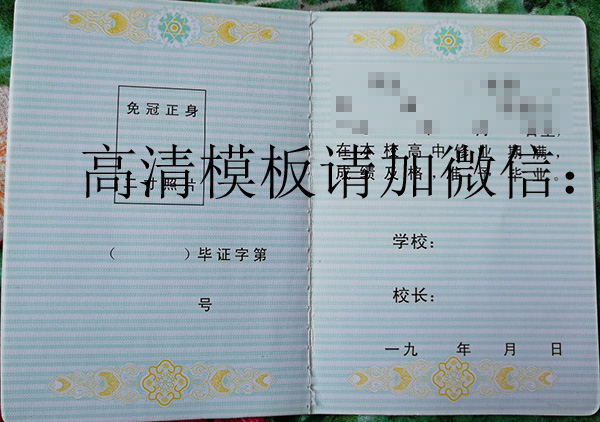 免冠正身
二寸照片
( )毕证字第
号
年 月 日生,
在本校高中修业期满,
成绩及格,准予毕业。
学校:
校长:
一九 年 月 日
高清模板请加微信: